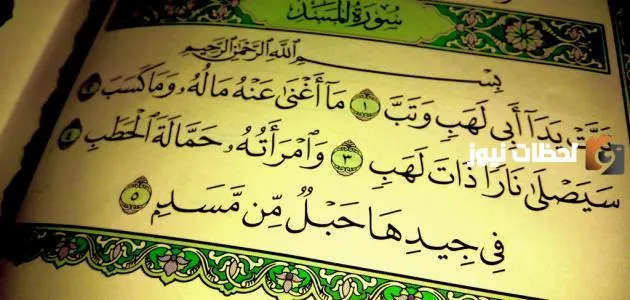 سُورَةُ المَسَدِ
بِسْمِ اللَّهِ الرَّحْمَٰنِ الرَّحِيمِ
تَبَّتْ يَدَآ أَبِى لَهَبٍ وَتَبَّ ١ مَآ أَغْنَىٰ عَنْهُ مَالُهُۥ وَمَا كَسَبَ ٢
سَيَصْلَىٰ نَارًا ذَاتَ لَهَبٍ ٣ وَٱمْرَأَتُهُۥ حَمَّالَةَ ٱلْحَطَبِ ٤
فِى جِيدِهَا حَبْلٌ مِّن مَّسَدٍۭ ٥
لحظات نيوز